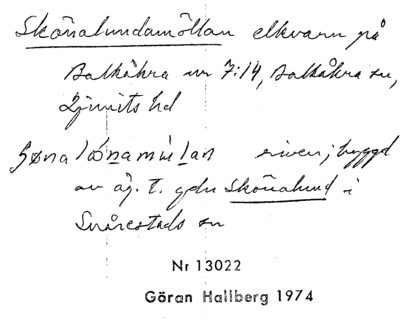 Skönalundamöllan elkvarn på
Balkåkra nr 7:14, Balkåkra sn,
Ljunits hd
riven; byggd
av äg. t. gdn Skönalund i
Snårestads sn
Nr 13022
Göran Hallberg 1974